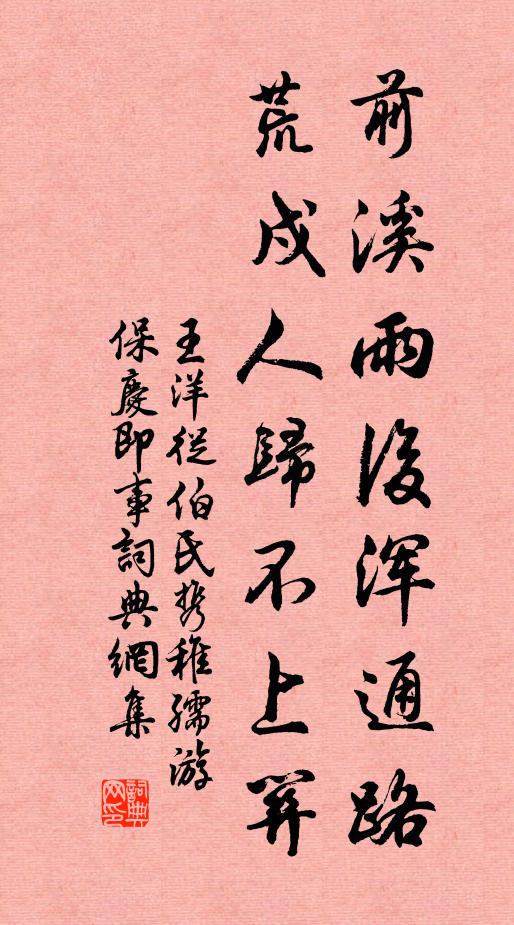 前溪雨後渾通路
荒戍人歸不上關
王洋從伯氏攜稚孺游
保慶即事詞典網集
詞典網印